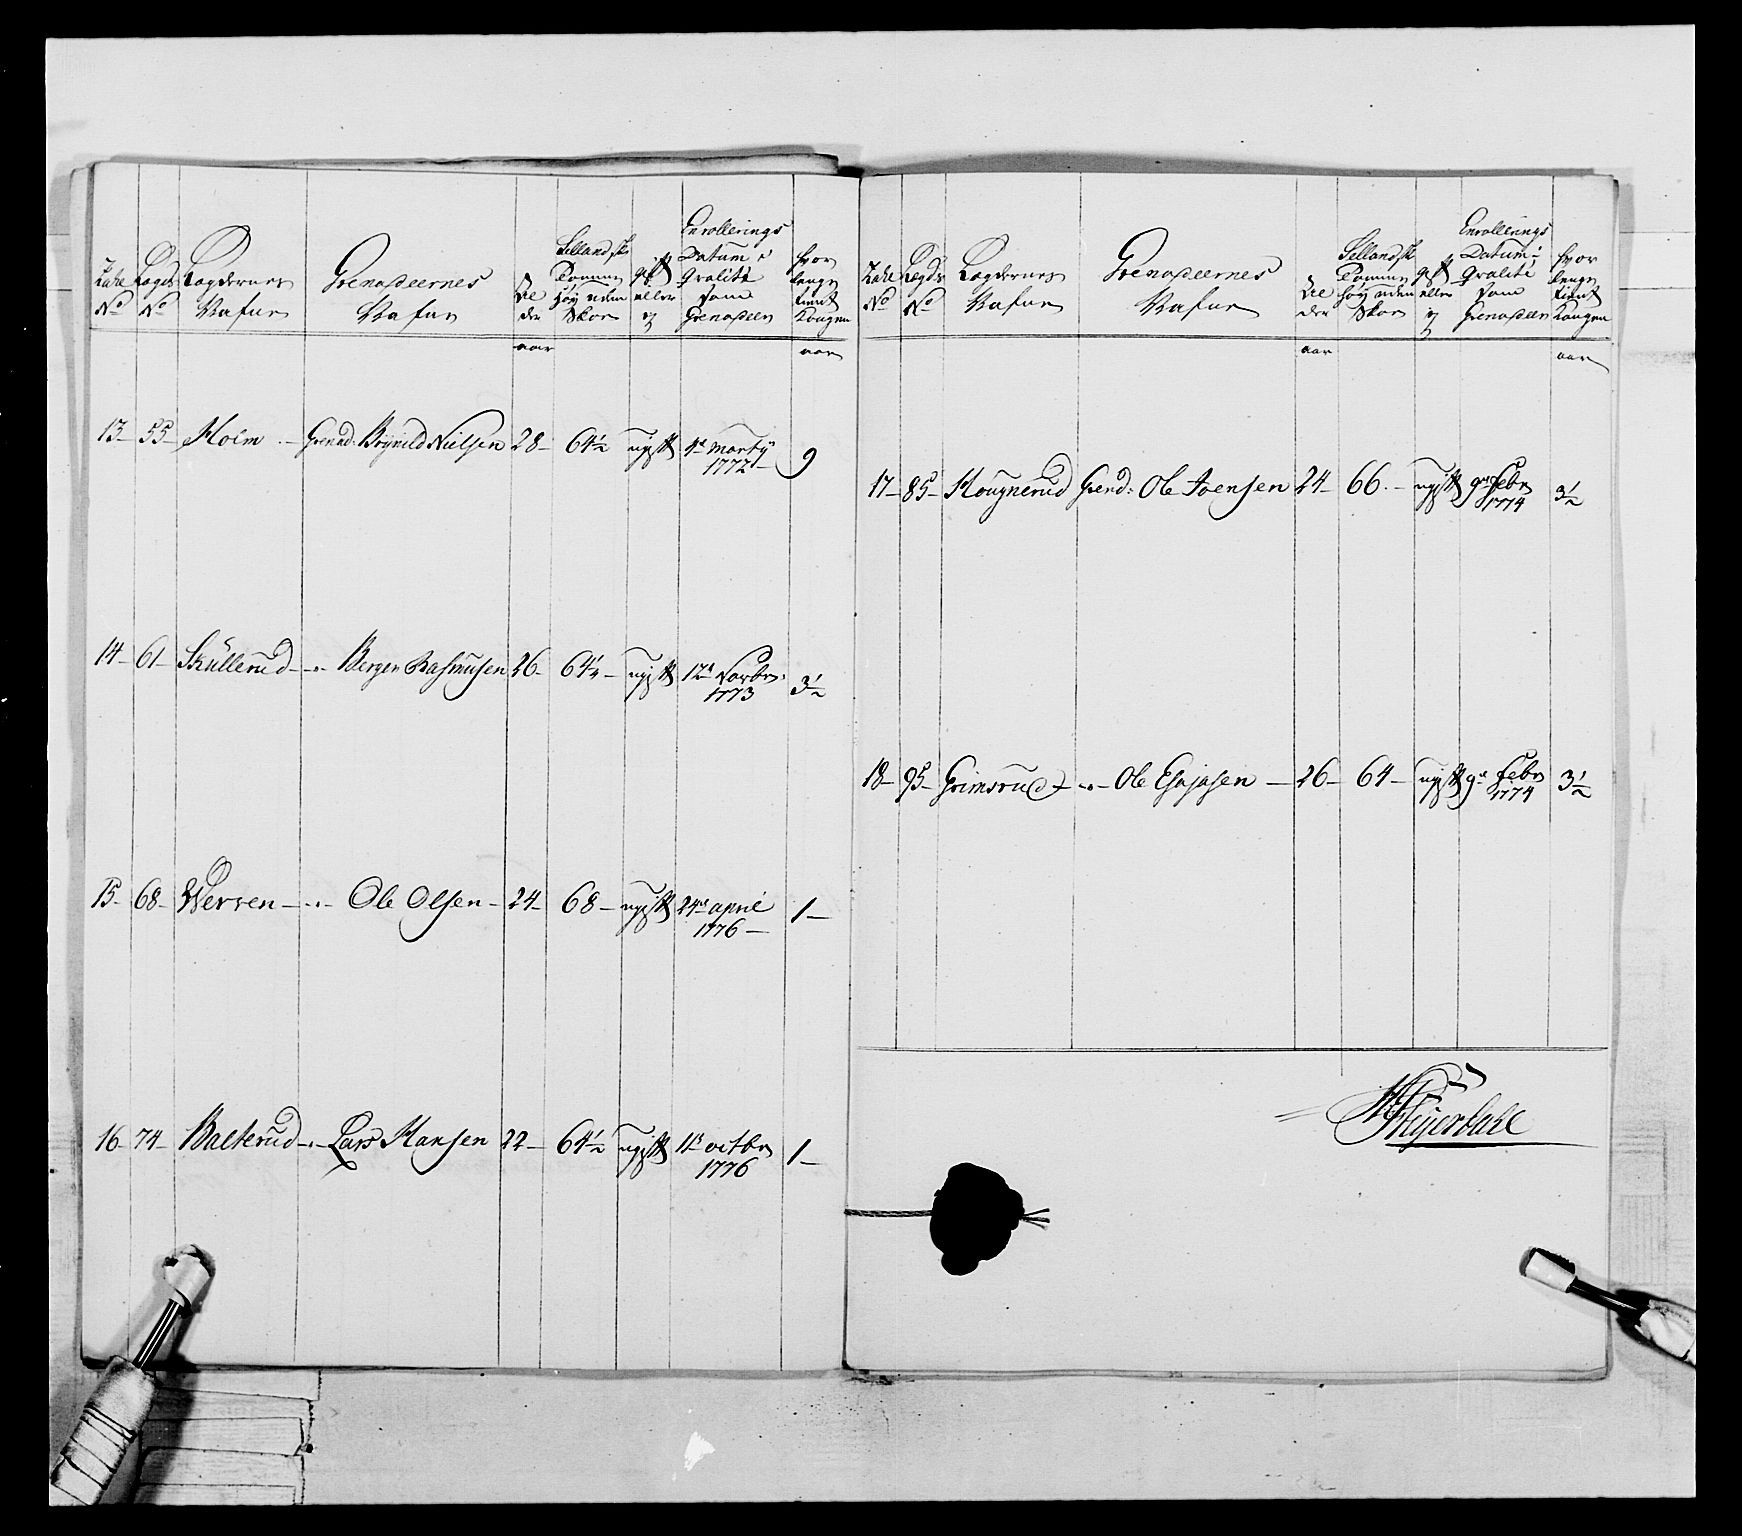 Tahl No
Lægds No
Lægdernes Nafne
Grenadeernes Nafne
Al der
Sellandsk Tomme høy uden Skoe
gift eller ej
Enrollerings Datum i Qvalité som Grenadeer
hvor længe tient Kongen
aar
aar
13 – 55 – Holm – Grenad: Brynild Nielsen 28 – 64½ ugift 4de Marty 1772 – 9
14 – 61 – Skullerud – „ – Bergen Rasmusen 26 – 64¼ – ugift 12te Novbr: 1773 3½
15 – 68 – Werren – „ – Ole Olsen – 24 – 68 – ugift 24de april 1776 – 1 –
16 – 74 – Balterud – „ – Lars Hansen 22 – 64½ ugift 11te octbr 1776 1 –
Tahl No
Lægds No
Lægdernes Nafne
Grenadeernes Nafne
Al der
Sellandsk Tomme høy uden Skoe
gift eller ej
Enrollerings Datum i Qvalité som Grenadeer
hvor længe tient Kongen
aar
aar
17 – 85 – Hougnerud Grend: Ole Joensen 24 – 66 – ugift 9de Febr 1774 3½
18 – 95 – Grimsrud – „ – Ole Esajasen – 26 – 64 – ugift 9de Febr 1774 3½
Heyerdahl